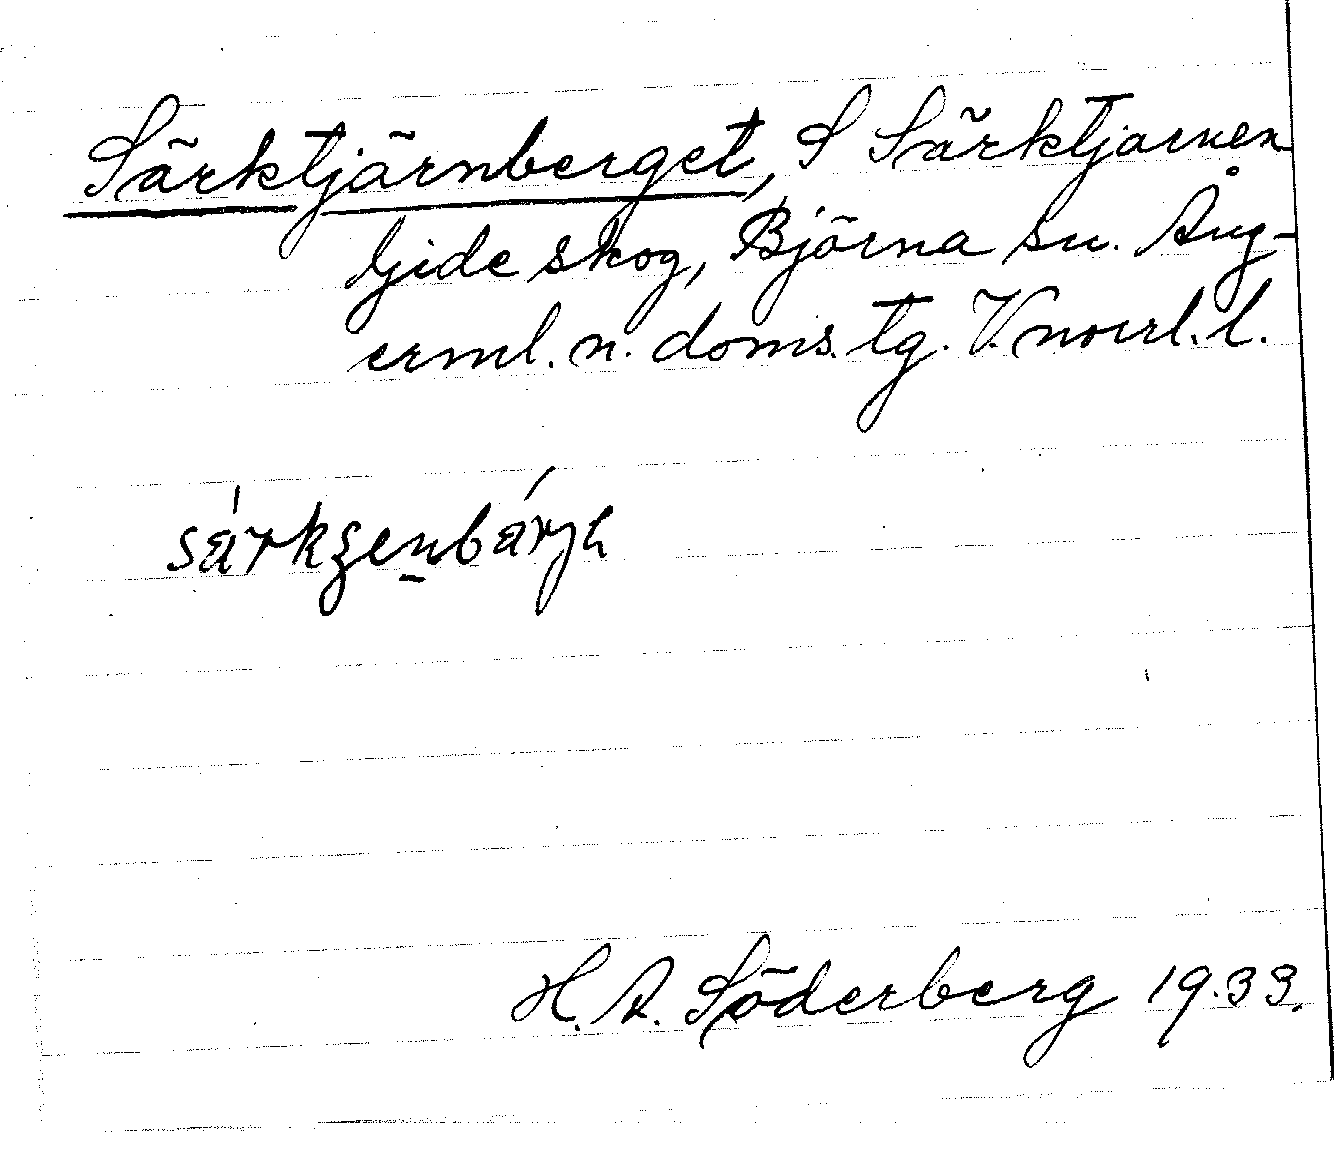 Särktjärnberget, S Särktjärnen
Gideskog, Björna sn. Ång-
erml. n. doms. tg. V.norrl. l.
H. A. Söderberg 1933.